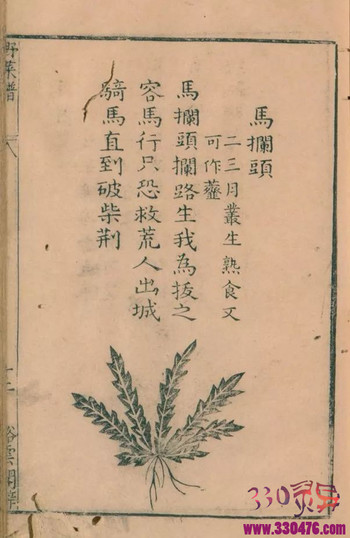 馬攔頭
二三月叢生熟食又
可作虀
馬攔頭攔路生我為拔之
容馬行只恐救荒人出城
騎馬直到破柴荆
野菜譜
330灵异
www.330476.com